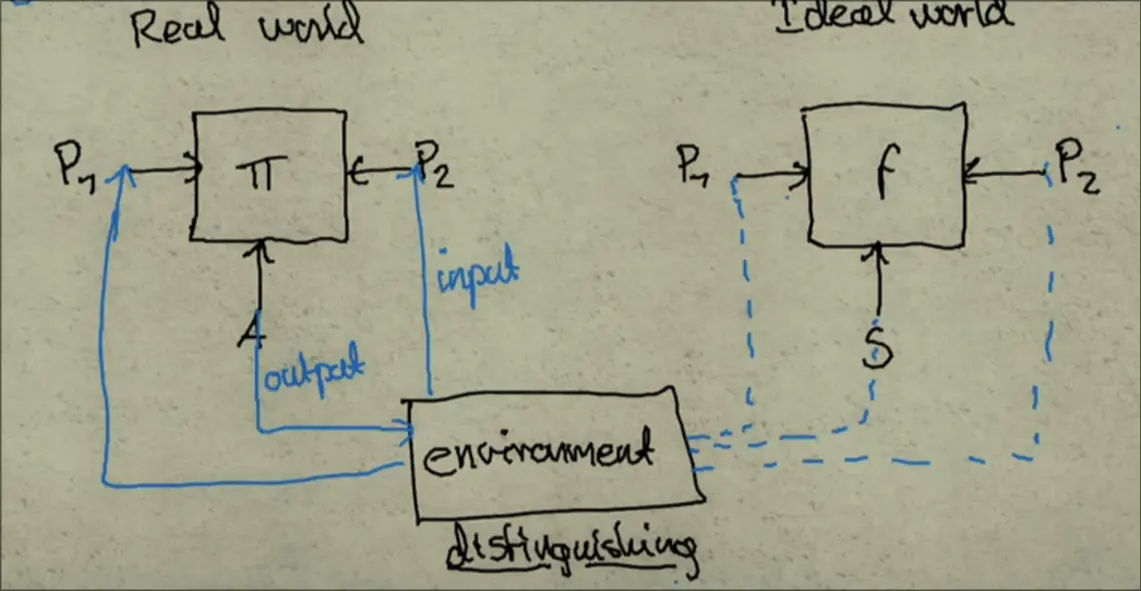 Real world
Ideal world
P1
π
P2
P1
f
P2
input
A
S
output
environment
distinguishing